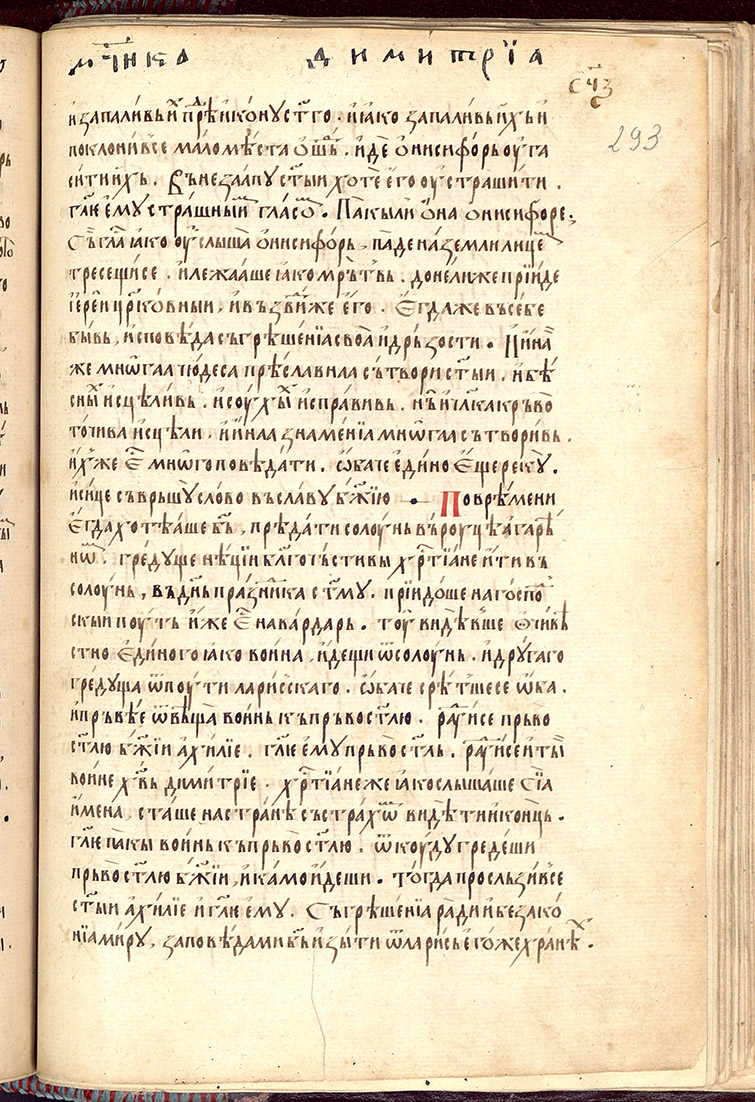 мч҃нка димитрїа
сч҃з
293
и҆запаливь и҆ прѣⷣ и҆ко́ною ст҃го . и҆ ꙗ҆ко запаливь и҆хь и҆
поклони́все мало мѣ́ста ѿше́ⷣ . и҆де ѻ҆нисифо́рь оу҆га
си́ти и҆хь . Вънеꙁаапу ст҃ыи хотѐ е҆го оу҆страшити .
гл҃ѥ є҆му стра́шныⷨ гла́сѡⷨ . Па́кыли ѻ҆на ѻ҆нисифоре .
Съ́ гла́ ꙗ҆ко оу҆слыша ѻ҆нисифо́рь , паде на земли лицеⷨ
тресещи́се . и҆ лежа́аше ꙗ҆ко мрь́твь . до́нелиже прїи́де
ї҆ере́и црк҃о́вныи , и҆ въꙁдви́же є҆го . Є҆гда́ же въ себе
бы́вь , и҆споведа съгрѣше́нїа своꙗ и҆ дрь́ꙁости . И҆ и҆на́
же мнѡ́гаа чю́деса прѣсла́внаа сътвори ст҃ыи . и҆ бѣ́
сныⷯ и҆сцѣли́вь . и҆ соухыⷯ и҆спра́вивь .
точи́ва и҆сцели . и҆ и҆наа зна́менїа мнѡ́гаа сътвори́вь .
и҆́хже є҆ⷭ мнѡ́го повѣдати . ѡ҆ба́че є҆ди́но є҆ще рекꙋ .
и҆ сице съврьшꙋ сло́во въ сла́вꙋ бж҃їю . По врѣ́мени
є҆гда хотѣ́аше бь҃ , прѣда́ти солоу́нь въ роуцѣ а҆гарѣ́
нѡⷨ . гредꙋще нѣ́цїи бл҃гочь́стивы хрⷭ҇тїа́не и҆ти въ
солоу́нь , въ дн҃ь пра́ꙁника ст҃мꙋ . прїидо́ше на господ
скыи поу́ть и҆же є҆ⷭ на ва́рдарь . тоу ви́дѣвше ѻ҆чивѣ́
стно є҆ди́ного ꙗ҆ко воина , и҆деща ѿ солоу́нь . и҆ дрꙋгаго
гредꙋща ѿ поу́ти лариⷭ҇скаго . ѡ҆баче срѣ́тшесе ѡ҆ба .
и҆ прь́вѣе ѿвѣ́ща воинь къ прьвост҃лю . раⷣу́исе прьво
ст҃лю бж҃їи а҆хи́лїе . гл҃ѥ є҆мꙋ прьвост҃ль . раⷣуи́се и҆ ты̀
во́ине хв҃ь ди́митрїе . хрⷭ҇тїа́не же ꙗ҆ко слы́шаше сїа
и҆мена , ста́ше на странѣ̀ съ стра́хѡⷨ ви́дѣти и҆ коньць .
гл҃ѥ па́кы воинь къ прьвост҃лю . ѿкоу́дꙋ греде́ши
прьвост҃лю бж҃їи , и҆ ка́мо и҆деши . То́гда просльꙁи́все
ст҃ыи а҆хи́лїе и҆ гл҃ѥ є҆мꙋ . Съгрѣше́нїа ра́ди и҆ беꙁако́
нїа миру , запове́да ми бь҃ иꙁы́ти ѿ ларисы є҆го́же хра́неⷯ .